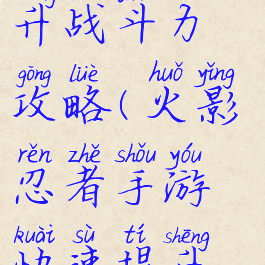 升战斗力
gōng lüè huǒ yǐng
攻略(火影
rěn zhě shǒu yóu
忍者手游
kuài sù tí shēng
快速提升